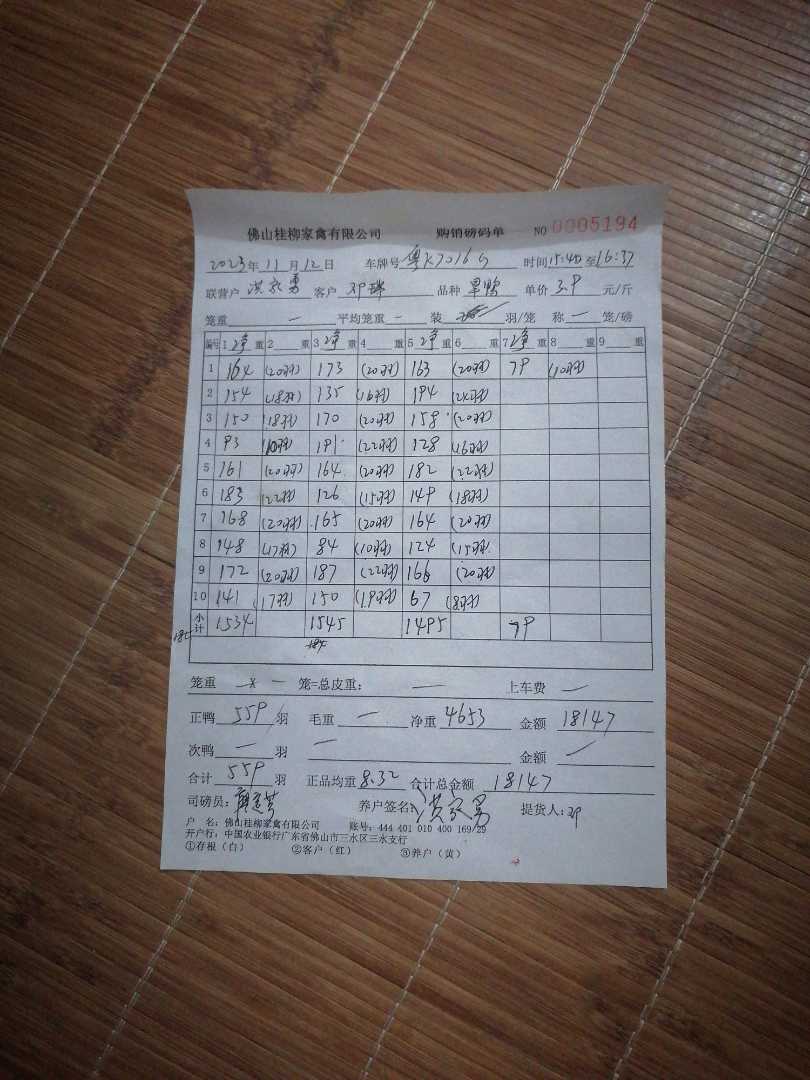 佛山桂柳家禽有限公司 购销磅码单 NO 0005194
2023年11月12日 车牌号 粤K7016G 时间15:40至16:37
联营户 洪家勇 客户 邓 品种 旱鸭 单价 3.9 元/斤
笼重 — 平均笼重 — 装 羽/笼 称 — 笼/磅
编号 1 净 重 2 重 3 净 重 4 重 5 净 重 6 重 7 净 重 8 重 9 重
1 164 (20羽) 173 (20羽) 163 (20羽) 79 (10羽)
2 154 (18羽) 135 (16羽) 194 (24羽)
3 150 (18羽) 170 (20羽) 158 (20羽)
4 93 (10羽) 191 (22羽) 128 (16羽)
5 161 (20羽) 164 (20羽) 182 (22羽)
6 183 (22羽) 126 (15羽) 149 (18羽)
7 168 (20羽) 165 (20羽) 164 (20羽)
8 148 (17羽) 84 (10羽) 124 (15羽)
9 172 (20羽) 187 (22羽) 166 (20羽)
10 141 (17羽) 150 (19羽) 67 (8羽)
小计 1534 1545 1495 79
185 184
笼重 — × — 笼=总皮重: — 上车费 —
正鸭 559 羽 毛重 — 净重 4653 金额 18147
次鸭 — 羽 — 金额 —
合计 559 羽 正品均重 8.32 合计总金额 18147
司磅员: 养户签名: 洪家勇 提货人: 邓
户 名: 佛山桂柳家禽有限公司 账号: 444 401 010 400 169/29
开户行: 中国农业银行广东省佛山市三水区三水支行
①存根（白） ②客户（红） ③养户（黄）